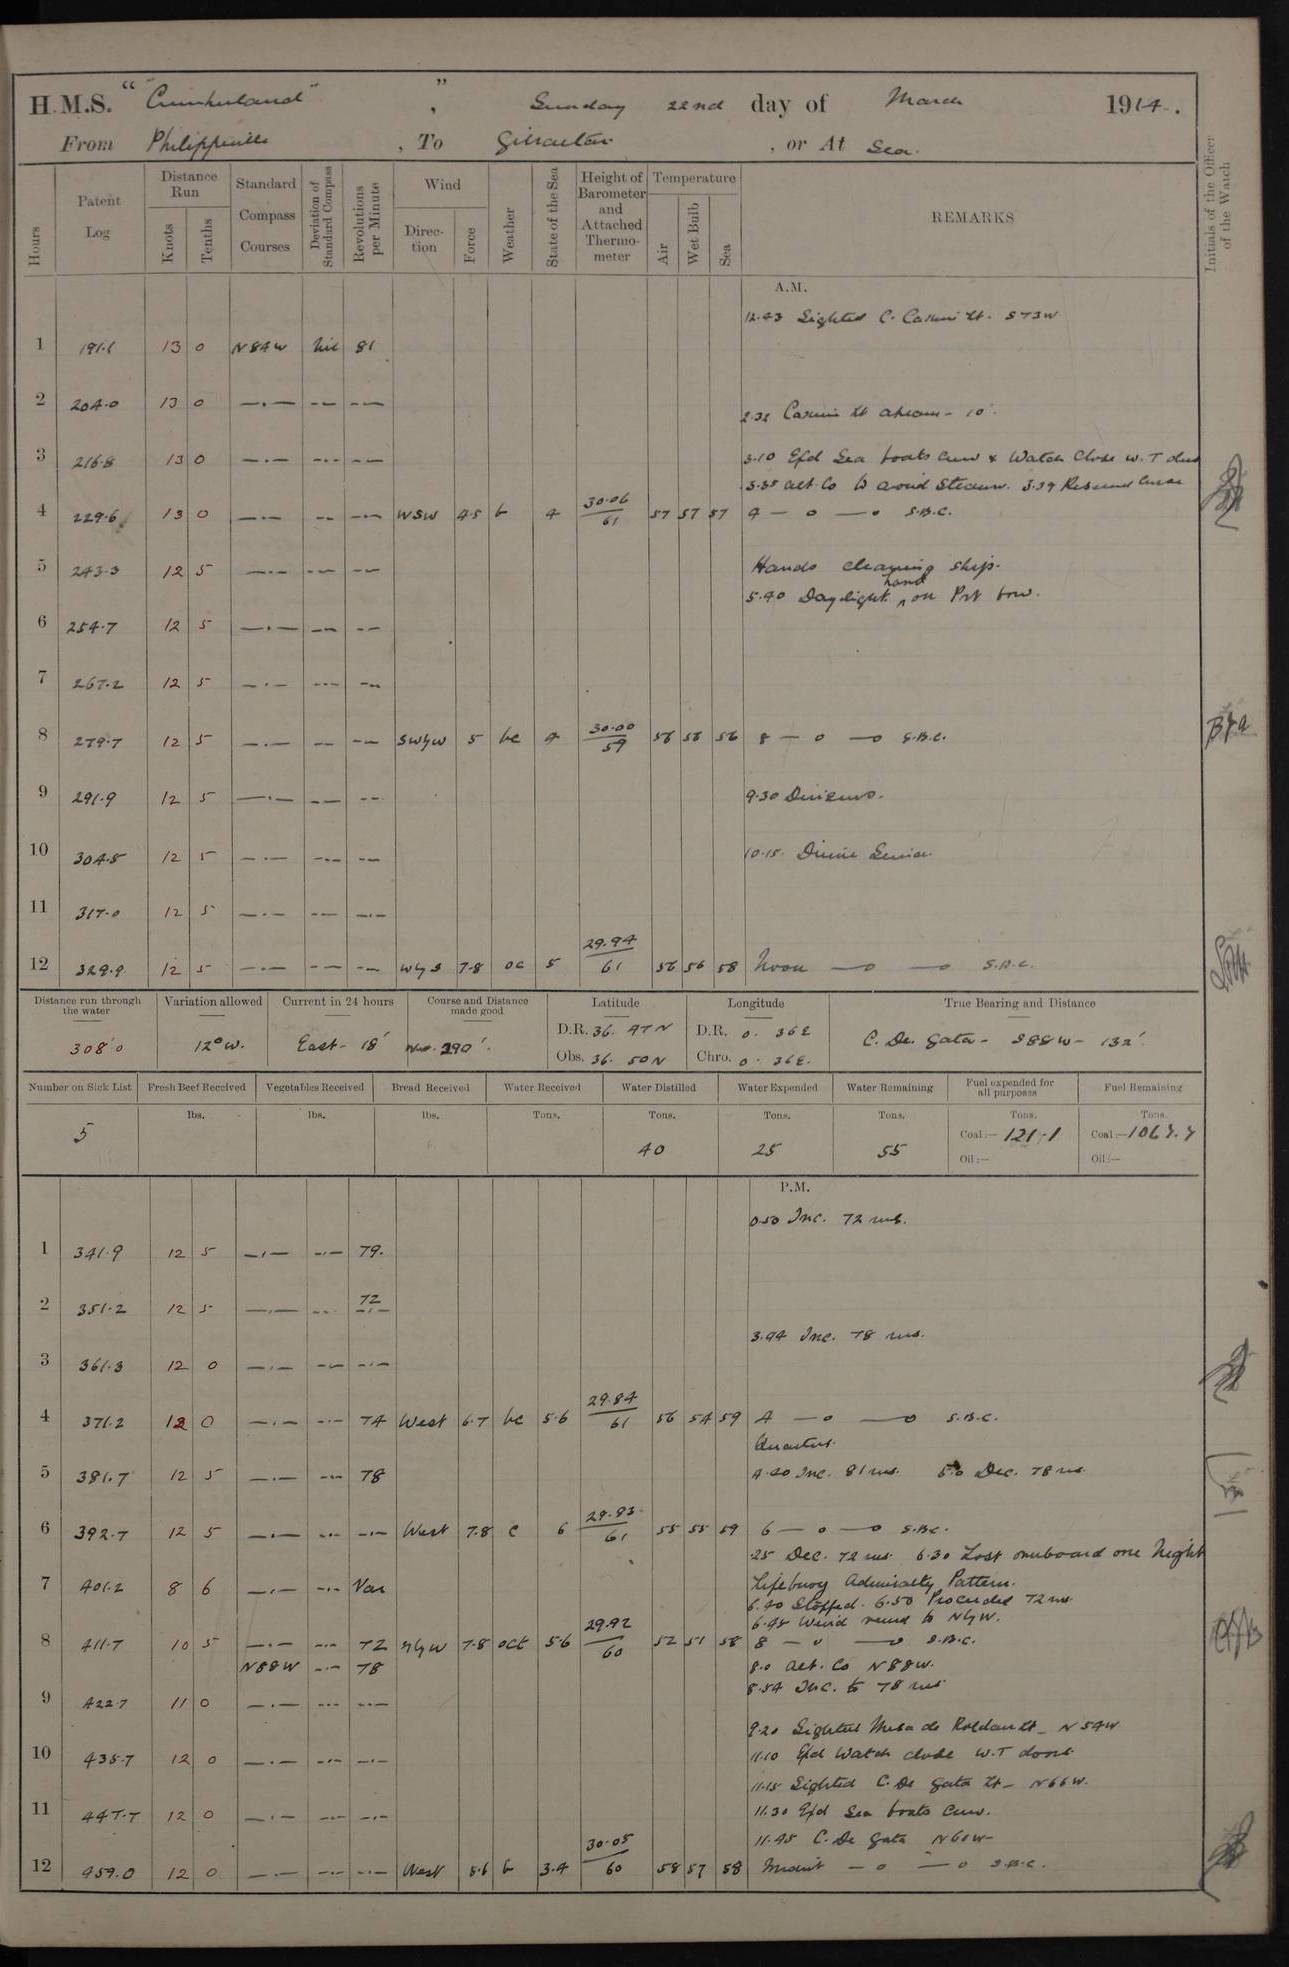 H.M.S. "Cumberland", Sunday 22nd day of March 1914.
From Philippeville, To Gibraltar, or At Sea.
Hours
Patent Log
Distance Run
Knots
Tenths
Standard Compass Courses
Deviation of Standard Compass
Revolutions per Minute
Wind
Direction
Force
Weather
State of the Sea
Height of Barometer and Attached Thermometer
Temperature
Air
Wet Bulb
Sea
REMARKS
Initials of the Officer of the Watch
A.M.
12.43 Sighted C. Caxine Lt. S73W
1 191.1 13 0 N84W Nil 81
2 204.0 13 0 —·— —— ——
2.32 Caxine Lt abeam – 10'.
3 216.8 13 0 —·— —·— ——
3.10 Exd Sea boats crew & Watch Close W.T. drs
3.35 alt. Co to avoid Steamer. 3.39 Resumed Course
4 229.6 13 0 —·— —— —·— WSW 4.5 b 4 30.06/61 57 57 57 4 — o — o S.B.C.
5 243.3 12 5 —·— —— ——
Hands cleaning ship.
5.40 Daylight. land on Prt bow.
6 254.7 12 5 —·— —— ——
7 267.2 12 5 —·— —— ——
8 279.7 12 5 —·— —— —— SWyW 5 bc 4 30.00/59 56 56 56 8 — o — o S.B.C.
9 291.9 12 5 —·— —— —— 9.30 Divisions.
10 304.5 12 5 —·— —·— —— 10.15. Divine Service.
11 317.0 12 5 —·— —— —·—
12 329.9 12 5 —·— —— —— WyS 7.8 oc 5 29.94/61 56 56 58 Noon — o — o S.B.C.
Distance run through the water
308'.0
Variation allowed
12°W.
Current in 24 hours
East – 18'
Course and Distance made good
290'.
Latitude
D.R. 36. 47N
Obs. 36. 50N
Longitude
D.R. 0. 36E
Chro. 0. 36E.
True Bearing and Distance
C. De. Gata – S88W – 132'.
Number on Sick List
5
Fresh Beef Received
lbs.
Vegetables Received
lbs.
Bread Received
lbs.
Water Received
Tons.
Water Distilled
Tons.
40
Water Expended
Tons.
25
Water Remaining
Tons.
55
Fuel expended for all purposes
Tons.
Coal:— 121.1
Oil:—
Fuel Remaining
Tons.
Coal:— 1067.7
Oil:—
P.M.
0.50 Inc. 72 revs.
1 341.9 12 5 —·— —·— 79.
2 351.2 12 5 —·— —·— 72
3.44 Inc. 78 revs.
3 361.3 12 0 —·— —— —·—
4 371.2 12 0 —·— —·— 74 West 6.7 bc 5.6 29.84/61 56 54 59 4 — o — o S.B.C.
Quarters.
5 381.7 12 5 —·— —·— 78 4.40 Inc. 81 revs. 5.0 Dec. 78 revs
6 392.7 12 5 —·— —·— —·— West 7.8 c 6 29.83/61 55 55 59 6 — o — o S.B.C.
.25 Dec. 72 revs. 6.30 Lost overboard one Night
7 401.2 8 6 —·— —·— Var Lifebuoy Admiralty Pattern.
6.40 Stopped. 6.50 Proceeded 72 revs.
6.45 Wind veered to NyW.
8 411.7 10 5 —·— —·— 72 NyW 7.8 oct 5.6 29.92/60 52 51 58 8 — o — o S.B.C.
N88W —·— 78 8.0 alt. Co N88W.
8.54 Inc. to 78 revs
9 422.7 11 0 —·— —·— —·—
9.20 Sighted Mesa de Roldan Lt – N54W
10 435.7 12 0 —·— —·— —·— 11.10 Exd Watch close W.T. doors
11.15 Sighted C. De Gata Lt – N66W.
11 447.7 12 0 —·— —·— —·— 11.30 Exd Sea boats crew.
11.45 C. De Gata N60W–
12 459.0 12 0 —·— —·— —·— West 5.6 b 3.4 30.05/60 58 57 58 Midnt — o — o S.B.C.